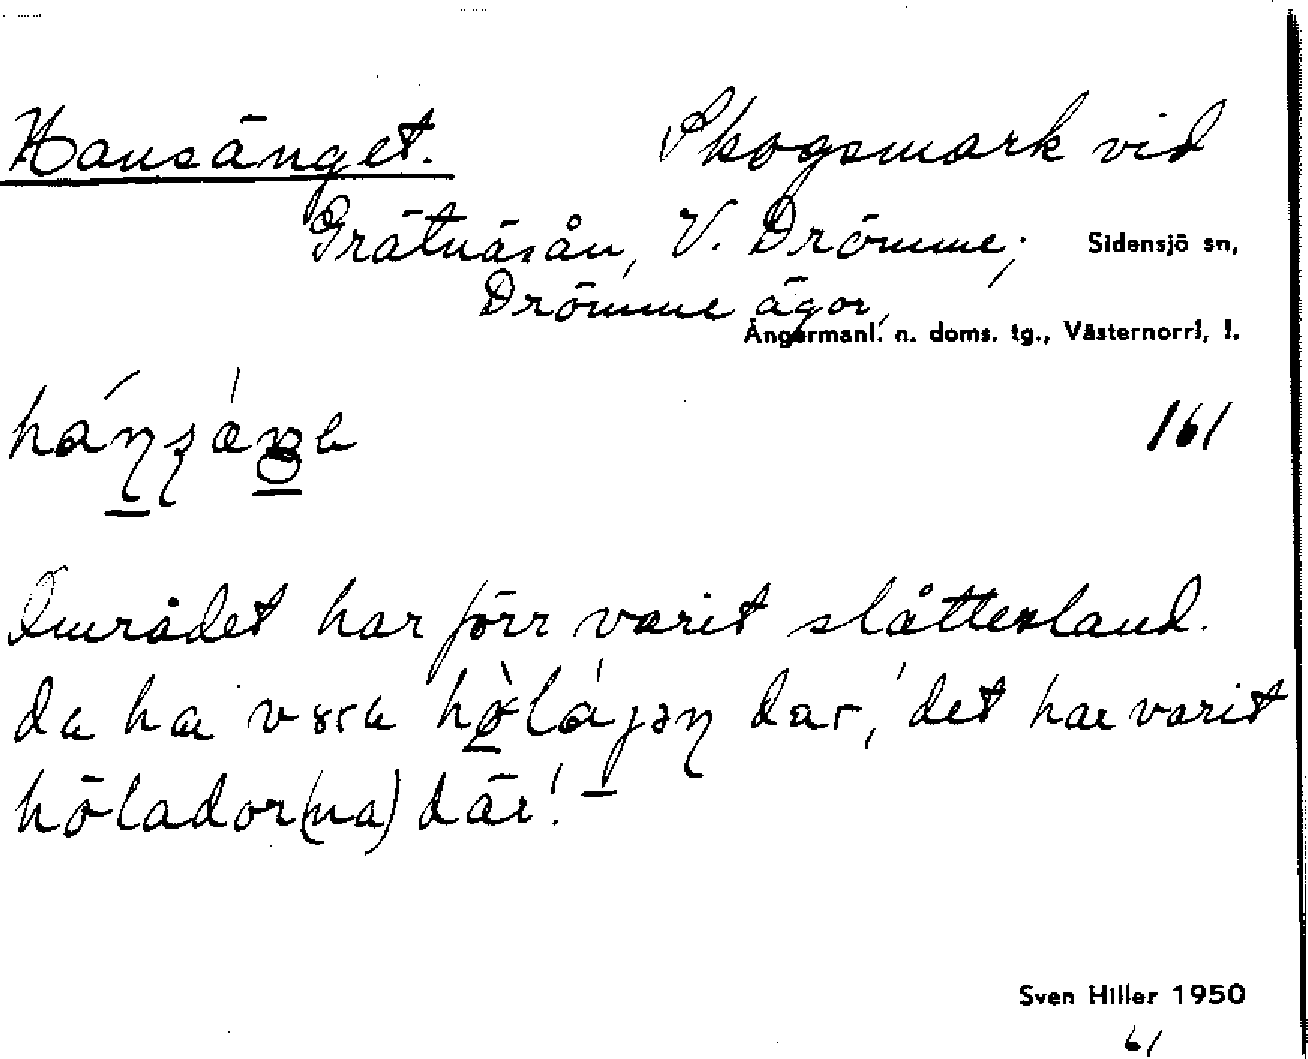 Hansänget. Skogsmark vid
Grätnäsån, V. Drömme; Sidensjö sn,
Drömme ägor,
Ångermanl. n. doms. tg., Västernorrl. l.
161
Området har förr varit slåtterland.
da ha dar, 'det har varit
hölador(na) där!
Sven Hiller 1950
61